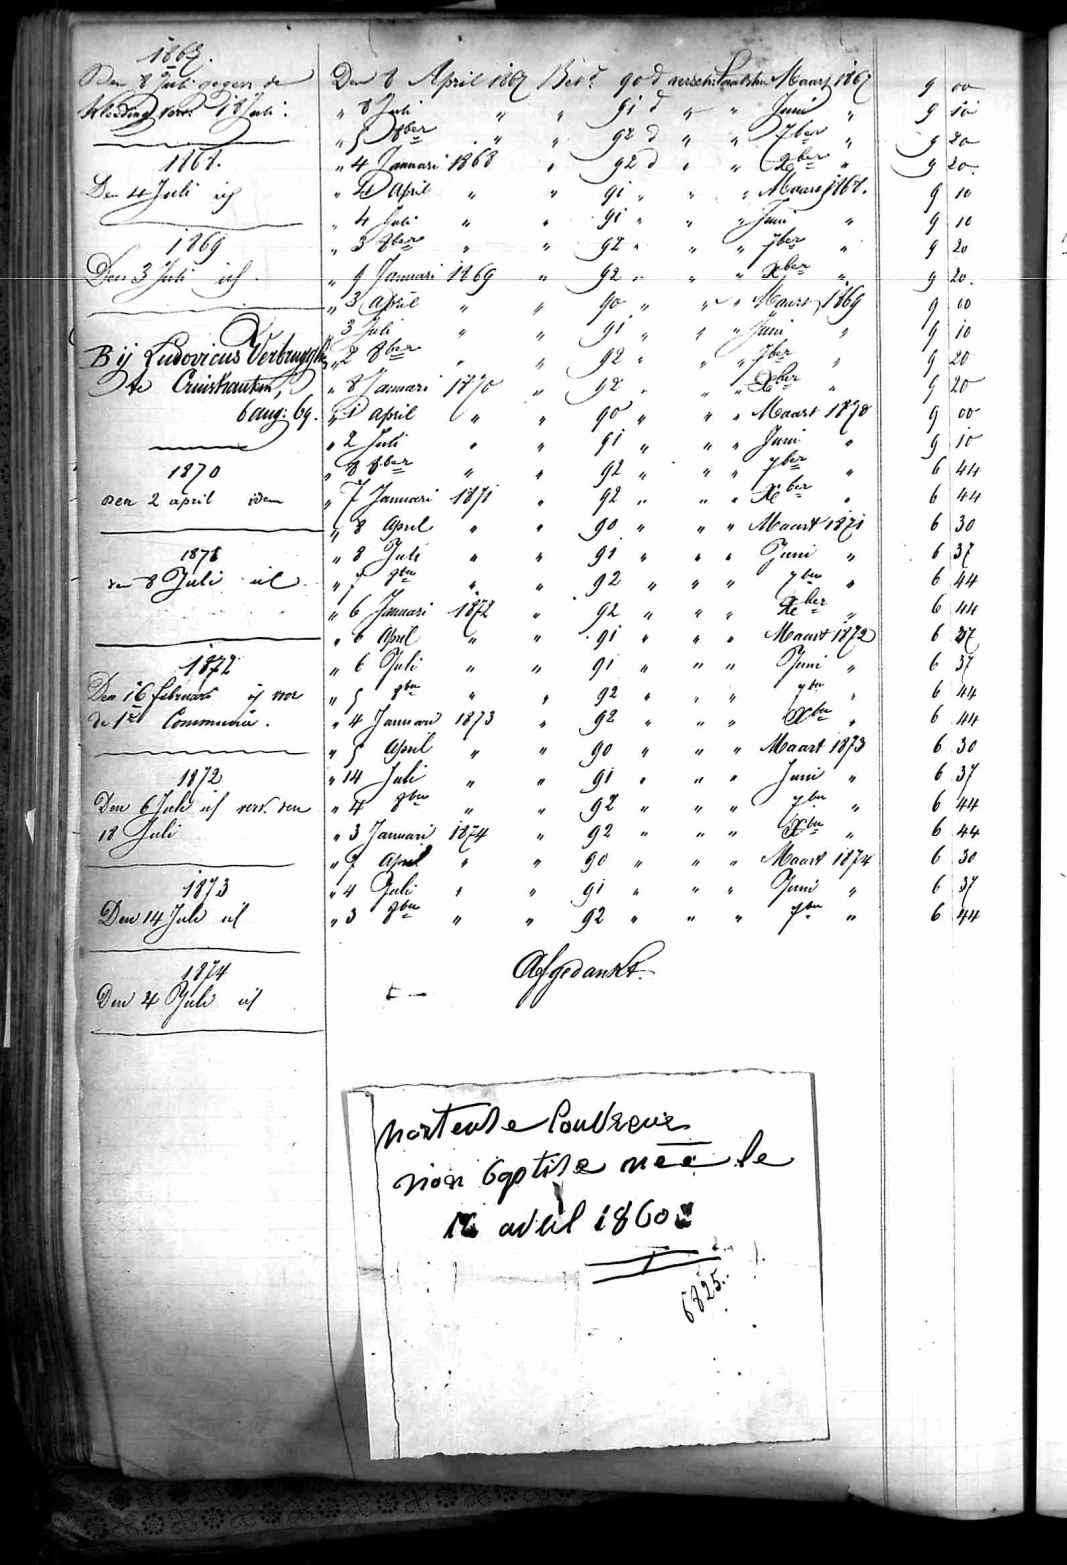 1867.
Den 8 Juli gegev. de
kleeding verv. 18 Juli.
1868.
Den 4 Juli id
1869
Den 3 Juli id.
Bij Ludovicus Verbrugghe
te Cruishautem,
6 aug: 69.
1870
den 2 april idem
1871
den 8 Juli id
1872
Den 16 februari id voor
de 1ste Communie.
1872
Den 6 Juli id verv. den
18 Juli
1873
Den 14 Juli id
1874
Den 4 Juli id
Den 8 April 1867 Bet.d 90 d verschi. laatsten Maart 1867 9 00
" 8 Juli " " 91 d " " Juni " 9 10
" 5 8ber " " 92 d " " 7ber " 9 20
" 4 Januari 1868 " 92 d " " Xber " 9 20
" 4 April " " 91 " " " Maart 1868. 9 10
" 4 Juli " " 91 " " " Juni " 9 10
" 3 8ber " " 92 " " " 7ber " 9 20
" 9 Januari 1869 " 92 " " " Xber " 9 20.
" 3 April " " 90 " " " Maart 1869 9 00
" 3 Juli " " 91 " " " Juni " 9 10
" 2 8ber " " 92 " " " 7ber " 9 20
" 8 Januari 1870 " 92 " " " Xber " 9 20
" 1 april " " 90 " " " Maart 1870 9 00
" 2 Juli " " 91 " " " Juni " 9 10
" 8 8ber " " 92 " " " 7ber " 6 44
" 7 Januari 1871 " 92 " " " Xber " 6 44
" 8 April " " 90 " " " Maart 1871 6 30
" 8 Juli " " 91 " " " Juni " 6 37
" 7 8ber " " 92 " " " 7ber " 6 44
" 6 Januari 1872 " 92 " " " Xber " 6 44
" 6 April " " 91 " " " Maart 1872 6 37
" 6 Juli " " 91 " " " Juni " 6 37
" 5 8ber " " 92 " " " 7ber " 6 44
" 4 Januari 1873 " 92 " " " Xber " 6 44
" 5 April " " 90 " " " Maart 1873 6 30
" 14 Juli " " 91 " " " Juni " 6 37
" 4 8ber " " 92 " " " 7ber " 6 44
" 3 Januari 1874 " 92 " " " Xber " 6 44
" 7 April " " 90 " " " Maart 1874 6 30
" 4 Juli " " 91 " " " Juni " 6 37
" 3 8ber " " 92 " " " 7ber " 6 44
Afgedankt.
hortense Couvreur
non baptise née le
16 avril 1860
6825.